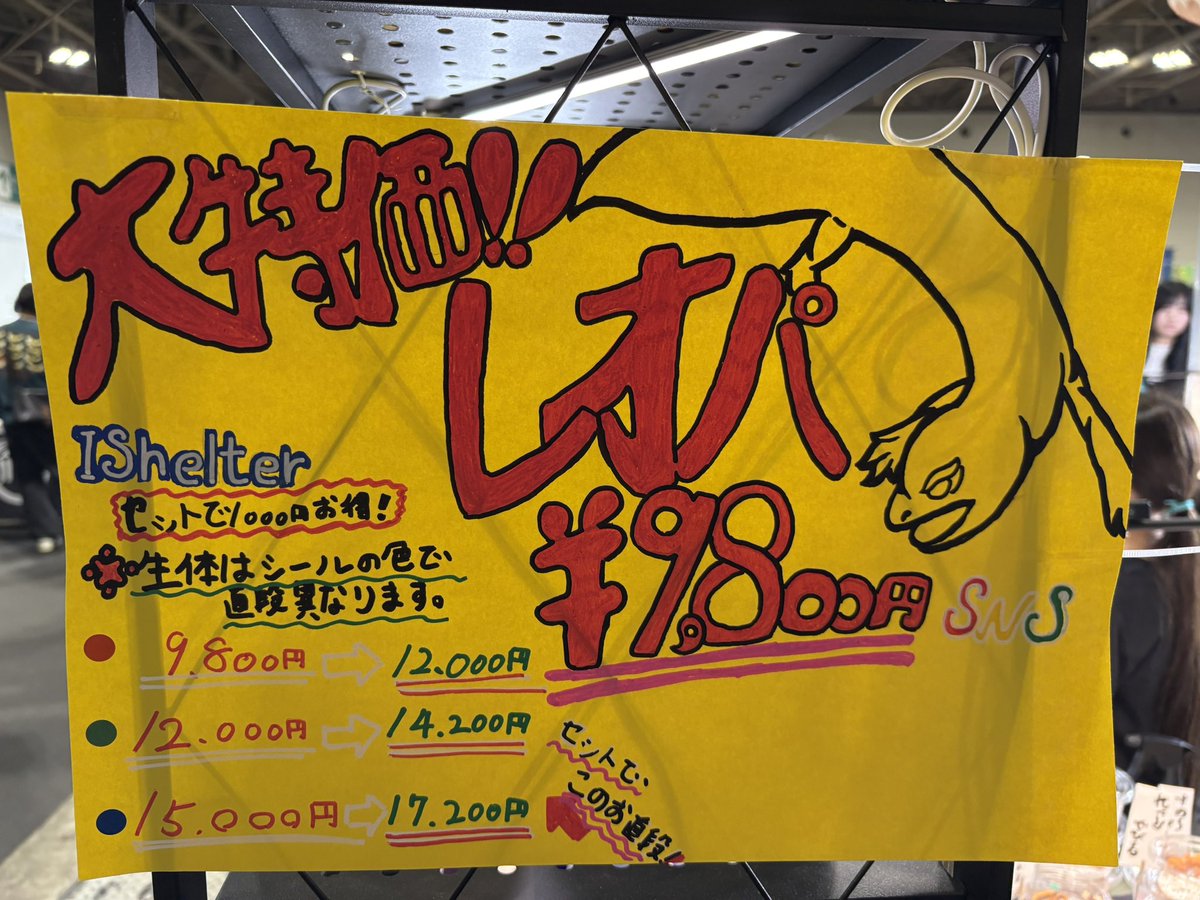 大特価!!
レオパ
¥9,800円
IShelter
セットで1000円お得!
生体はシールの色で
直段異なります。
9.800円 ⇨ 12.000円
12.000円 ⇨ 14.200円
15.000円 ⇨ 17.200円
セットで
このお直段!
SNS